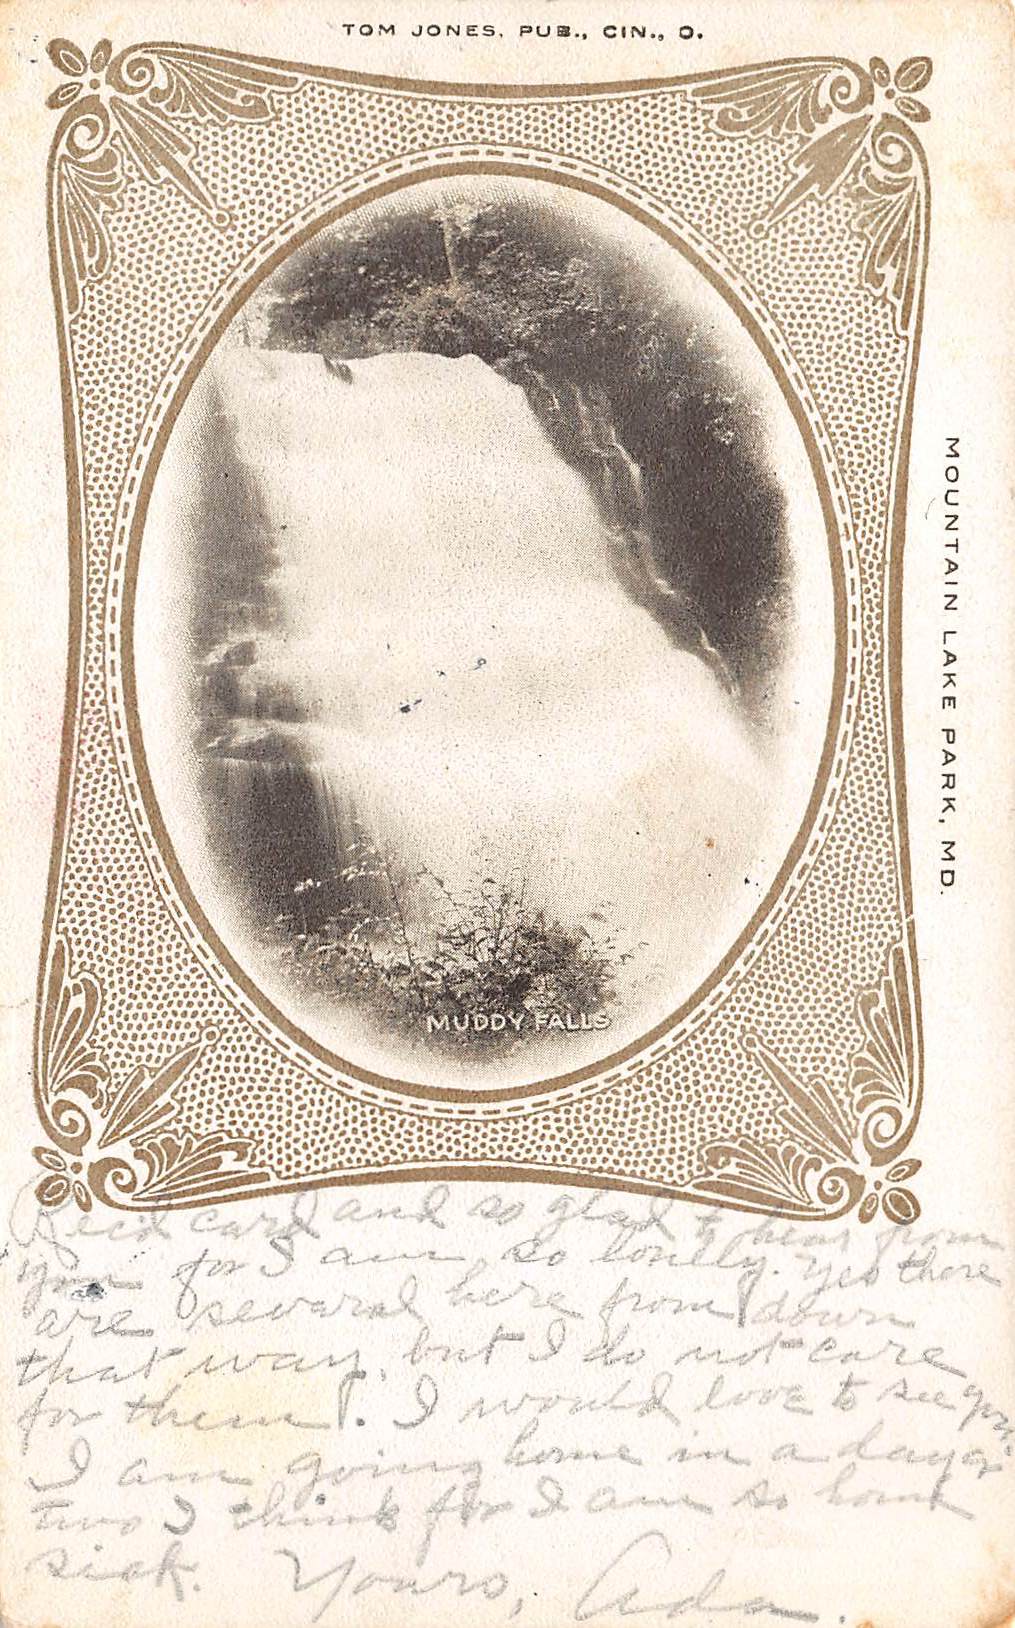 TOM JONES, PUB., CIN., O.
MOUNTAIN LAKE PARK, MD.
MUDDY FALLS
Rec'd card and so glad to hear from
you for I am so lonely. Yes there
are several here from down
that way, but I do not care
for them. I would love to see you.
I am going home in a day or
two I think for I am so home
sick. Yours, Ada.